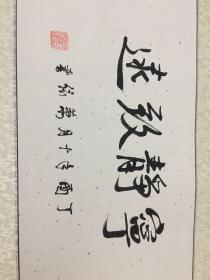 寧靜致遠
丁酉年十月